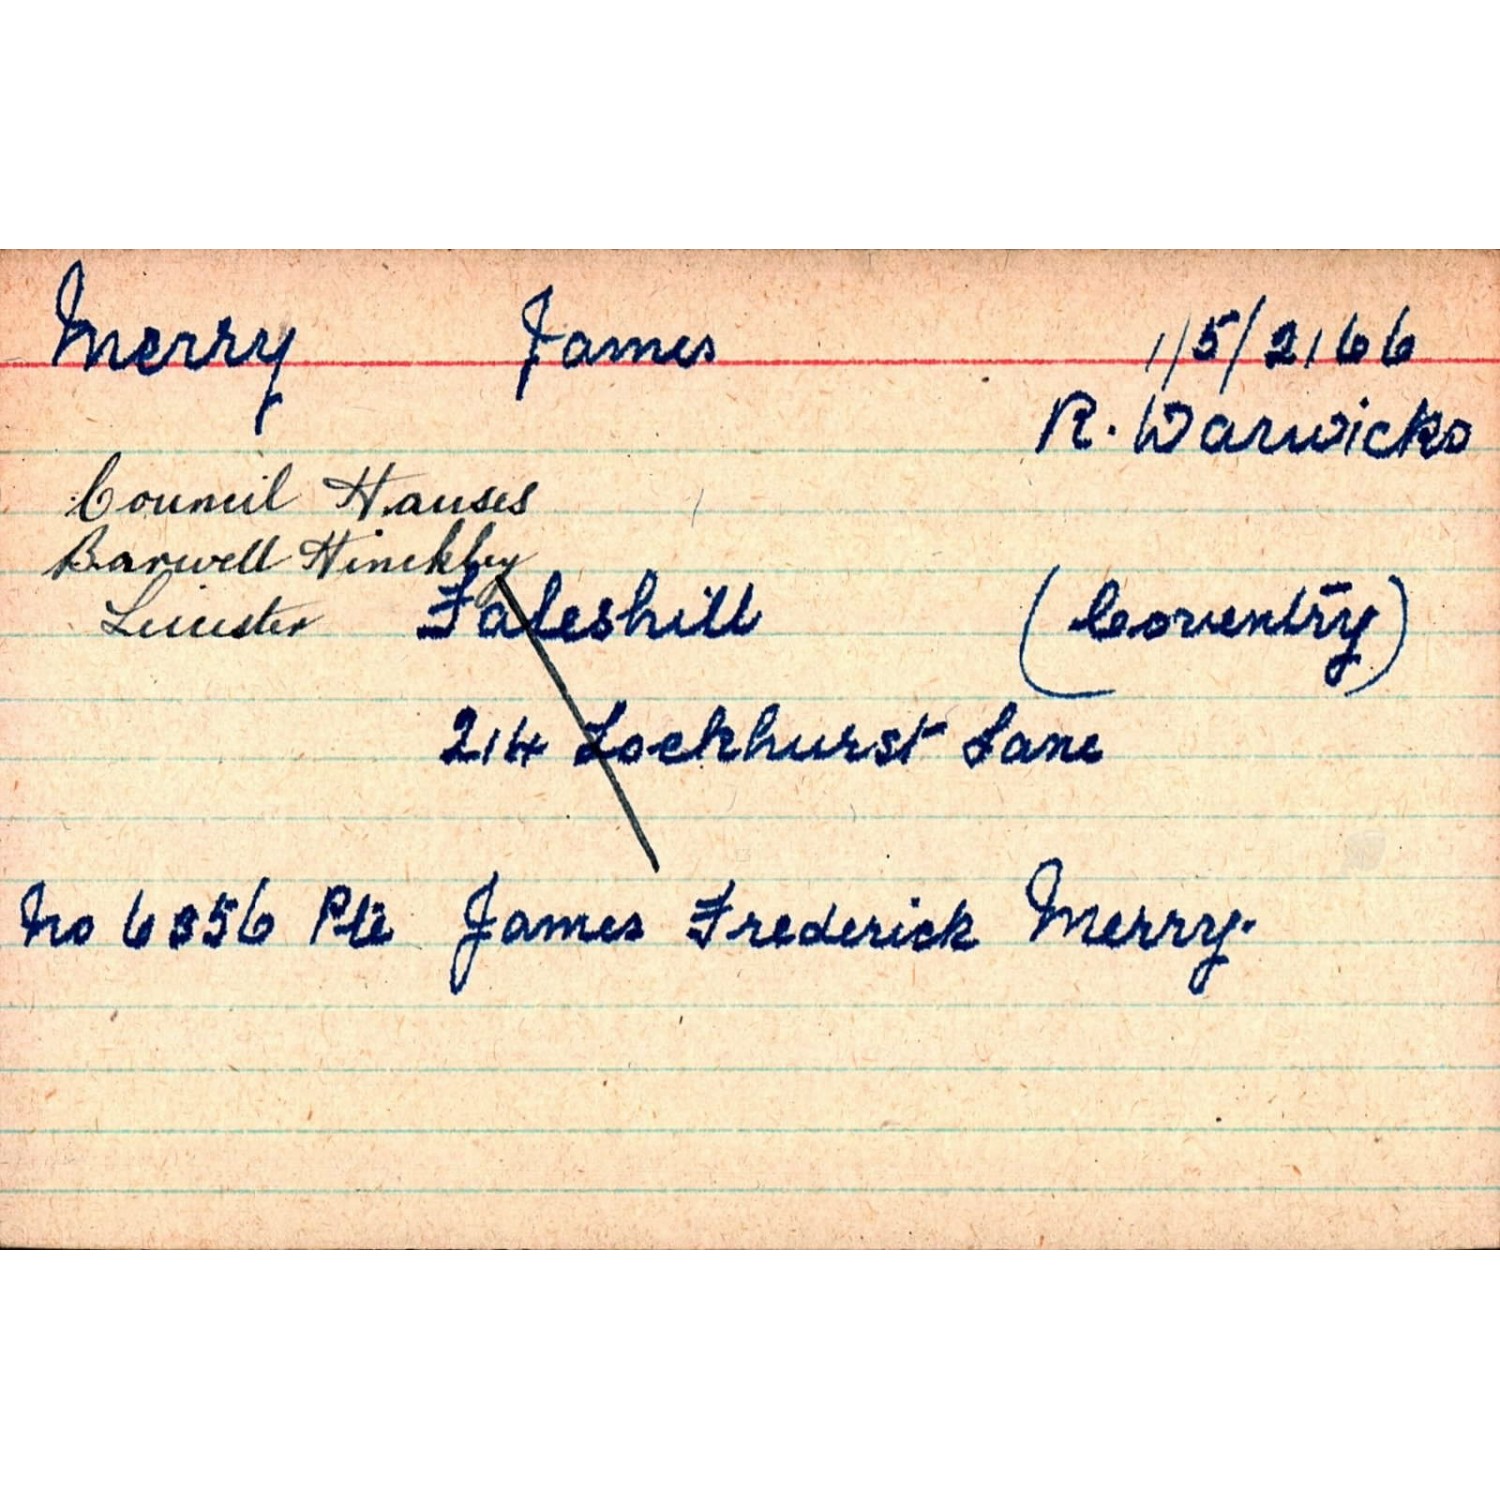 Merry James 115/2166
R. Warwicks
Council Houses
Barwell Hinckley
Leicester
Faleshill (Coventry)
214 Lockhurst Lane
No 6356 Pte James Frederick Merry.